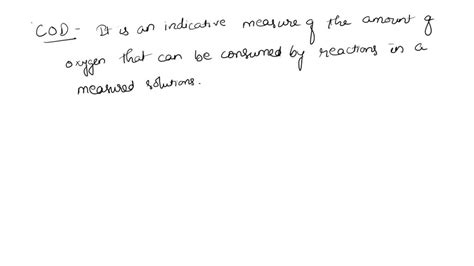 COD - It is an indicative measure of the amount of
oxygen that can be consumed by reactions in a
measured solutions.